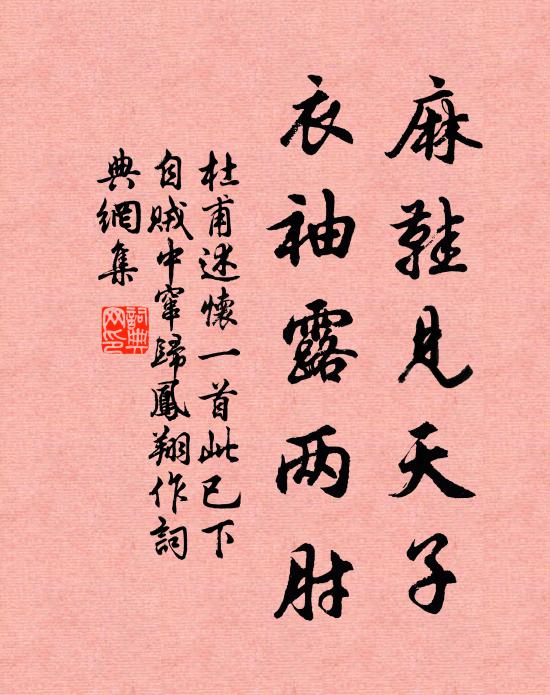 麻鞋見天子
衣袖露两肘
杜甫述懷一首此已下
自贼中窜歸鳳翔作詞
典網集
詞典
网印